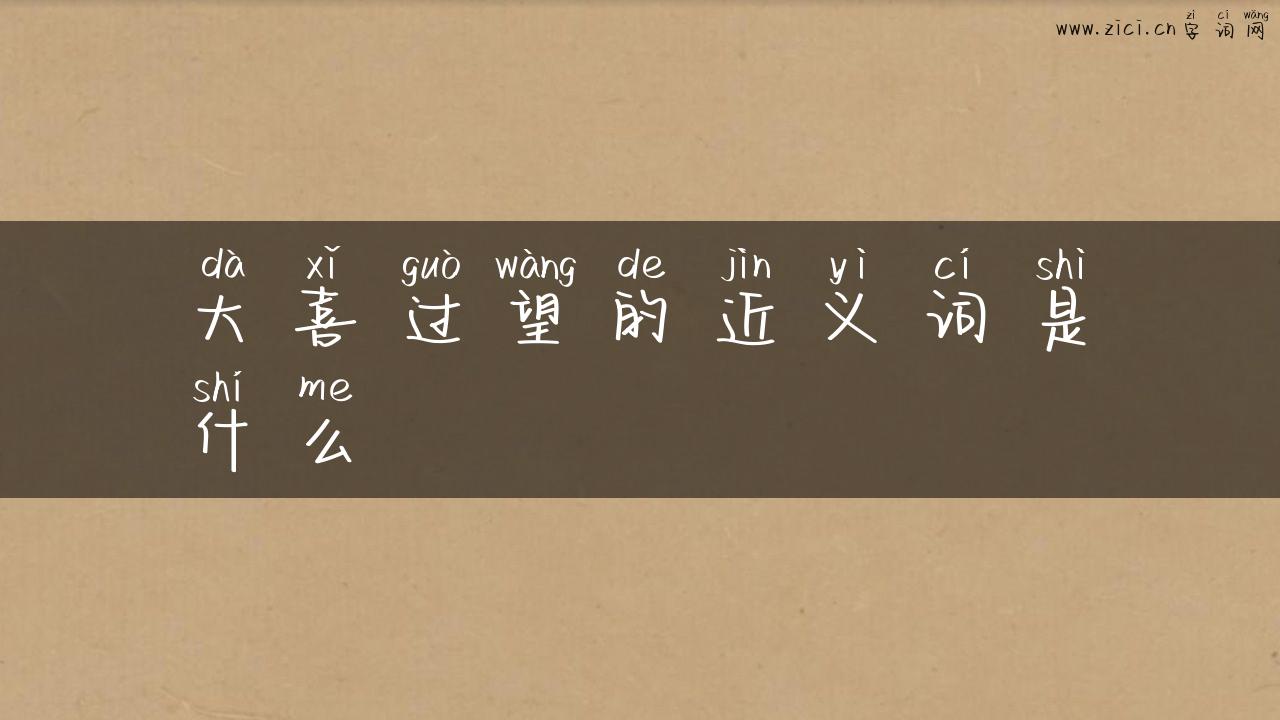 zì cí wǎng
www.zici.cn 字 词 网
dà xǐ guò wàng de jìn yì cí shì
大 喜 过 望 的 近 义 词 是
shí me
什 么